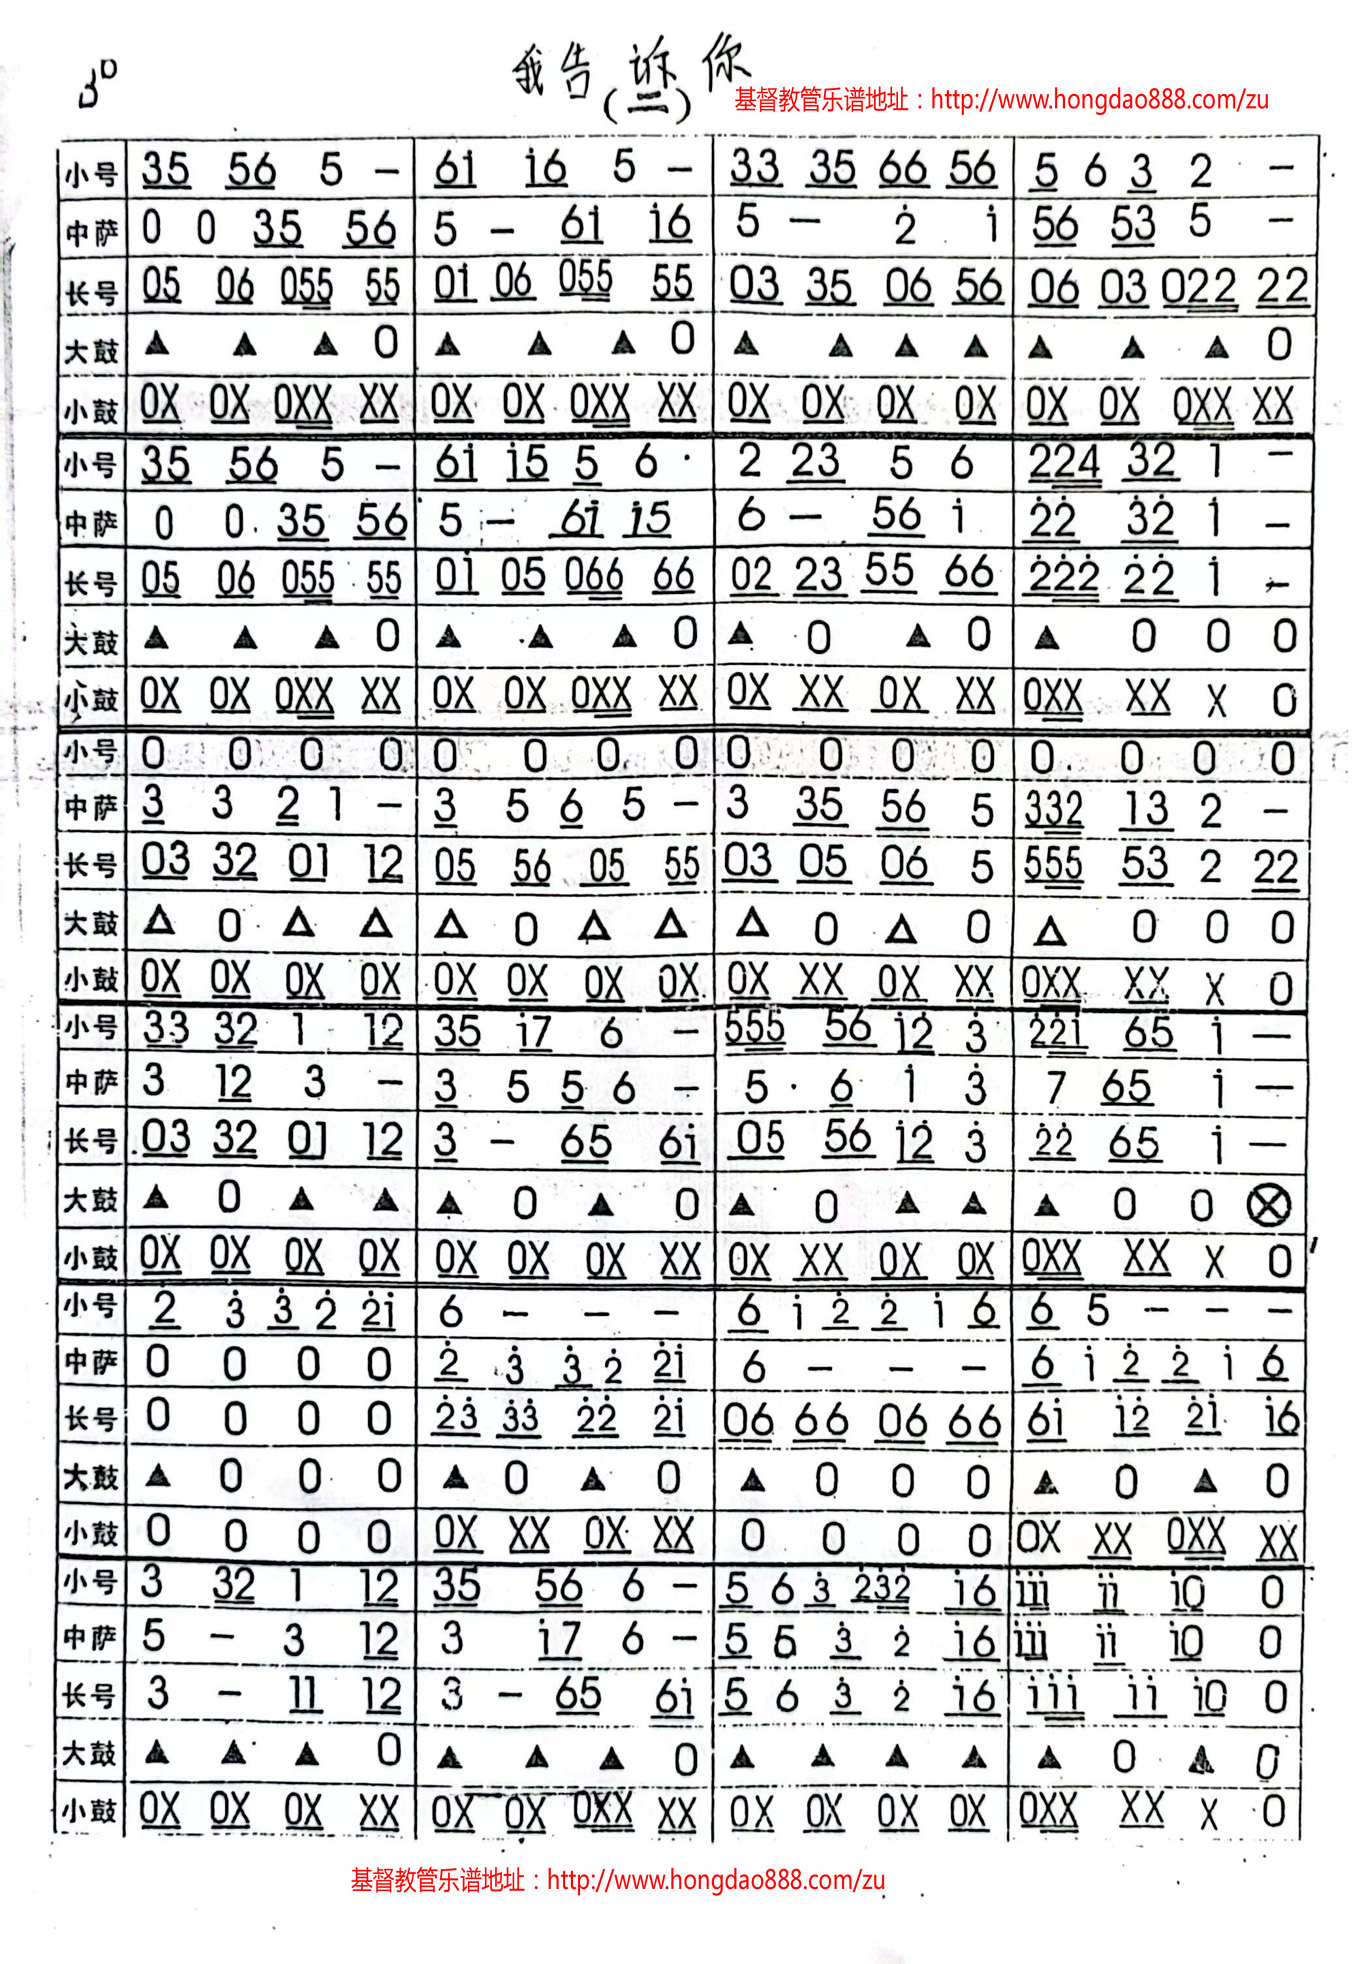 30
我告诉你
(二)
基督教管乐谱地址：http://www.hongdao888.com/zu
小号 35 56 5 – 6i i6 5 – 33 35 66 56 5 6 3 2 –
中萨 0 0 35 56 5 – 6i i6 5 – 2̇ i 56 53 5 –
长号 05 06 055 55 0i 06 055 55 03 35 06 56 06 03 022 22
大鼓 ▲ ▲ ▲ 0 ▲ ▲ ▲ 0 ▲ ▲ ▲ ▲ ▲ ▲ ▲ 0
小鼓 0X 0X 0XX XX 0X 0X 0XX XX 0X 0X 0X 0X 0X 0X 0XX XX
小号 35 56 5 – 6i i5 5 6 · 2 23 5 6 224 32 1 –
中萨 0 0 35 56 5 – 6i i5 6 – 56 i 2̇2̇ 3̇2̇ i –
长号 05 06 055 55 0i 05 066 66 02 23 55 66 2̇2̇2̇ 2̇2̇ i –
大鼓 ▲ ▲ ▲ 0 ▲ ▲ ▲ 0 ▲ 0 ▲ 0 ▲ 0 0 0
小鼓 0X 0X 0XX XX 0X 0X 0XX XX 0X XX 0X XX 0XX XX X 0
小号 0 0 0 0 0 0 0 0 0 0 0 0 0 0 0 0
中萨 3 3 2 1 – 3 5 6 5 – 3 35 56 5 332 13 2 –
长号 03 32 01 12 05 56 05 55 03 05 06 5 555 53 2 22
大鼓 △ 0 △ △ △ 0 △ △ △ 0 △ 0 △ 0 0 0
小鼓 0X 0X 0X 0X 0X 0X 0X 0X 0X XX 0X XX 0XX XX X 0
小号 33 32 1 12 35 i7 6 – 555 56 i2̇ 3̇ 2̇2̇i 65 i –
中萨 3 12 3 – 3 5 5 6 – 5 · 6 i 3̇ 7 65 i –
长号 03 32 01 12 3 – 65 6i 05 56 i2̇ 3̇ 2̇2̇ 65 i –
大鼓 ▲ 0 ▲ ▲ ▲ 0 ▲ 0 ▲ 0 ▲ ▲ ▲ 0 0 ⊗
小鼓 0X 0X 0X 0X 0X 0X 0X XX 0X XX 0X 0X 0XX XX X 0
小号 2 3̇ 3̇ 2̇ 2̇i 6 – – – 6 i 2̇ 2̇ i 6 6 5 – – –
中萨 0 0 0 0 2̇ 3̇ 3̇ 2̇ 2̇i 6 – – – 6 i 2̇ 2̇ i 6
长号 0 0 0 0 2̇3̇ 3̇3̇ 2̇2̇ 2̇i 06 66 06 66 6i i2̇ 2̇i i6
大鼓 ▲ 0 0 0 ▲ 0 ▲ 0 ▲ 0 0 0 ▲ 0 ▲ 0
小鼓 0 0 0 0 0X XX 0X XX 0 0 0 0 0X XX 0XX XX
小号 3 32 1 12 35 56 6 – 5 6 3̇ 2̇3̇2̇ i6 iii ii i0 0
中萨 5 – 3 12 3 i7 6 – 5 6 3̇ 2̇ i6 iii ii i0 0
长号 3 – 11 12 3 – 65 6i 5 6 3̇ 2̇ i6 iii ii i0 0
大鼓 ▲ ▲ ▲ 0 ▲ ▲ ▲ 0 ▲ ▲ ▲ ▲ ▲ 0 ▲ 0
小鼓 0X 0X 0X XX 0X 0X 0XX XX 0X 0X 0X 0X 0XX XX X 0
基督教管乐谱地址：http://www.hongdao888.com/zu